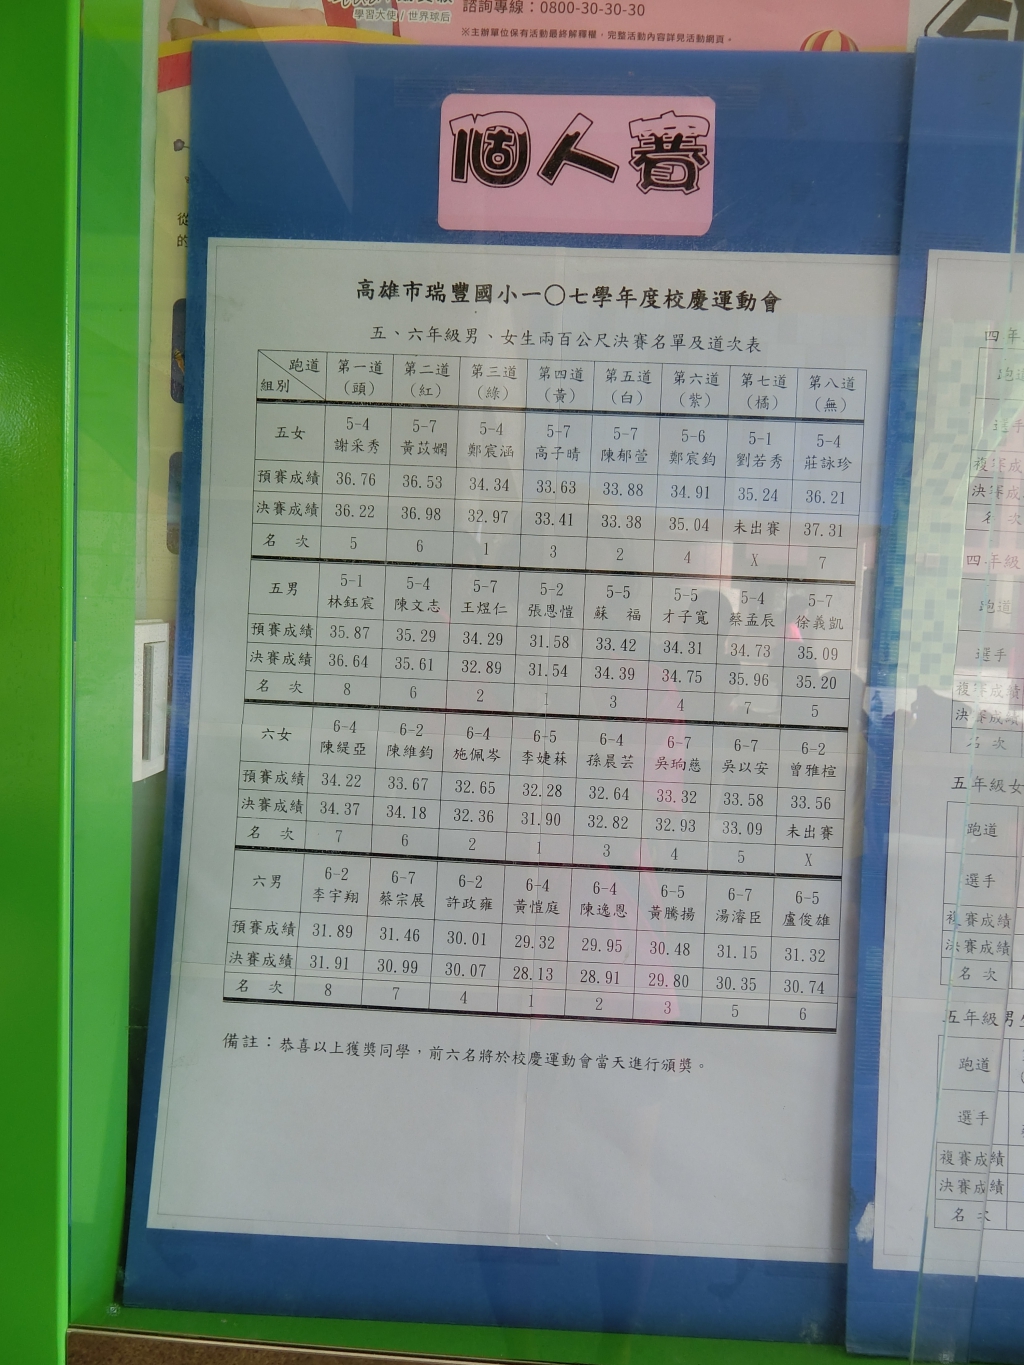 學習大使 / 世界球后
諮詢專線：0800-30-30-30
※主辦單位保有活動最終解釋權，完整活動內容詳見活動網頁。
從
的
個人賽
高雄市瑞豐國小一〇七學年度校慶運動會
五、六年級男、女生兩百公尺決賽名單及道次表
跑道 第一道 第二道 第三道 第四道 第五道 第六道 第七道 第八道
組別 （頭） （紅） （綠） （黃） （白） （紫） （橘） （無）
五女 5-4 5-7 5-4 5-7 5-7 5-6 5-1 5-4
謝采秀 黃苡嫻 鄭宸涵 高子晴 陳郁萱 鄭宸鈞 劉若秀 莊詠珍
預賽成績 36.76 36.53 34.34 33.63 33.88 34.91 35.24 36.21
決賽成績 36.22 36.98 32.97 33.41 33.38 35.04 未出賽 37.31
名 次 5 6 1 3 2 4 X 7
五男 5-1 5-4 5-7 5-2 5-5 5-5 5-4 5-7
林鈺宸 陳文志 王煜仁 張恩愷 蘇 福 才子寬 蔡孟辰 徐義凱
預賽成績 35.87 35.29 34.29 31.58 33.42 34.31 34.73 35.09
決賽成績 36.64 35.61 32.89 31.54 34.39 34.75 35.96 35.20
名 次 8 6 2 1 3 4 7 5
六女 6-4 6-2 6-4 6-5 6-4 6-7 6-7 6-2
陳緹亞 陳維鈞 施佩岑 李婕菻 孫晨芸 吳珦慈 吳以安 曾雅楦
預賽成績 34.22 33.67 32.65 32.28 32.64 33.32 33.58 33.56
決賽成績 34.37 34.18 32.36 31.90 32.82 32.93 33.09 未出賽
名 次 7 6 2 1 3 4 5 X
六男 6-2 6-7 6-2 6-4 6-4 6-5 6-7 6-5
李宇翔 蔡宗展 許政雍 黃愷庭 陳逸恩 黃騰揚 湯濬臣 盧俊雄
預賽成績 31.89 31.46 30.01 29.32 29.95 30.48 31.15 31.32
決賽成績 31.91 30.99 30.07 28.13 28.91 29.80 30.35 30.74
名 次 8 7 4 1 2 3 5 6
備註：恭喜以上獲獎同學，前六名將於校慶運動會當天進行頒獎。
四年
跑道
選手
複賽成
決賽成
名 次
四年級
跑道
選手
複賽成績
決賽成績
名 次
五年級女
跑道
選手
複賽成績
決賽成績
名 次
五年級男生
跑道
選手
複賽成績
決賽成績
名 次